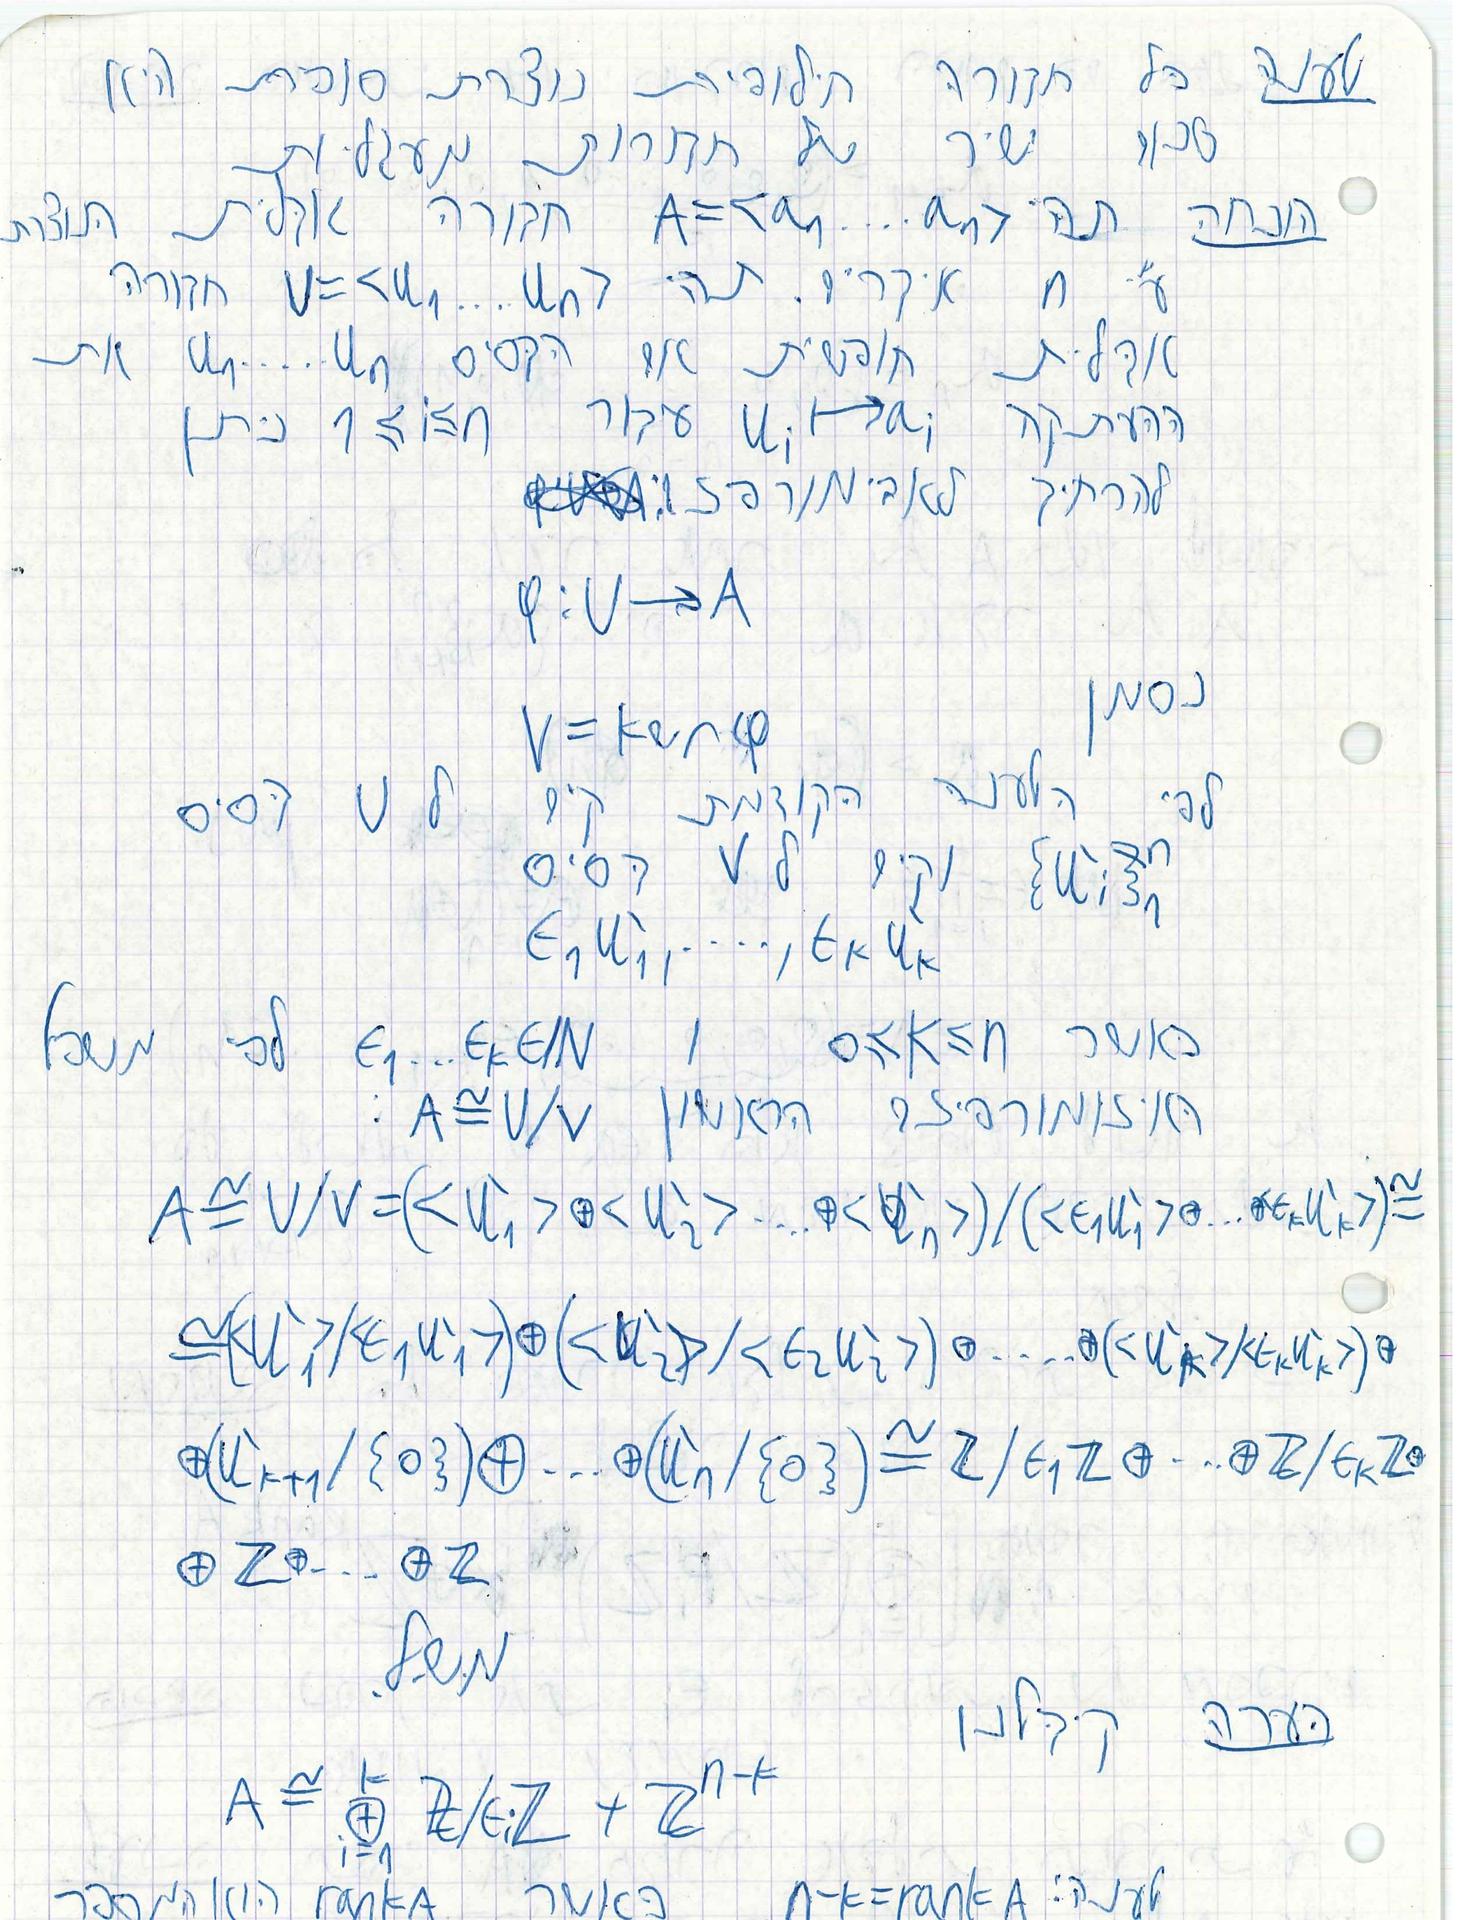 טענה כל חבורה חילופית נוצרת סופית היא
סכום ישיר של חבורות מעגליות
הוכחה תהי A=<a₁....aₙ> חבורה אבלית הנוצרת
ע"י n איברים. תהי U=<u₁....uₙ> חבורה
אבלית חופשית עם הבסיס u₁.....uₙ את
ההעתקה uᵢ↦aᵢ עבור 1≤i≤n ניתן
להרחיב לאפימורפיזם
φ:U→A
נסמן
V=kerφ
לפי הטענה הקודמת קיים ל U בסיס
{u'ᵢ}ⁿ₁ וקיים ל V בסיס
ϵ₁u'₁,.....,ϵₖu'ₖ
כאשר 0≤k≤n ו ϵ₁...ϵₖ∈ℕ לפי משפט
האיזומורפיזם הראשון A≅U/V :
A≅U/V=(<u'₁>⊕<u'₂>....⊕<u'ₙ>)/(<ϵ₁u'₁>⊕...⊕<ϵₖu'ₖ>)≅
≅(<u'₁>/<ϵ₁u'₁>)⊕(<u'₂>/<ϵ₂u'₂>)⊕.....⊕(<u'ₖ>/<ϵₖu'ₖ>)⊕
⊕(u'ₖ₊₁/{0})⊕...⊕(u'ₙ/{0})≅ℤ/ϵ₁ℤ⊕...⊕ℤ/ϵₖℤ⊕
⊕ℤ⊕....⊕ℤ
מ.ש.ל.
הערה קיבלנו
A≅⊕ᵏᵢ₌₁ ℤ/ϵᵢℤ + ℤⁿ⁻ᵏ
טענה: n-k=rankA כאשר rankA הוא המספר